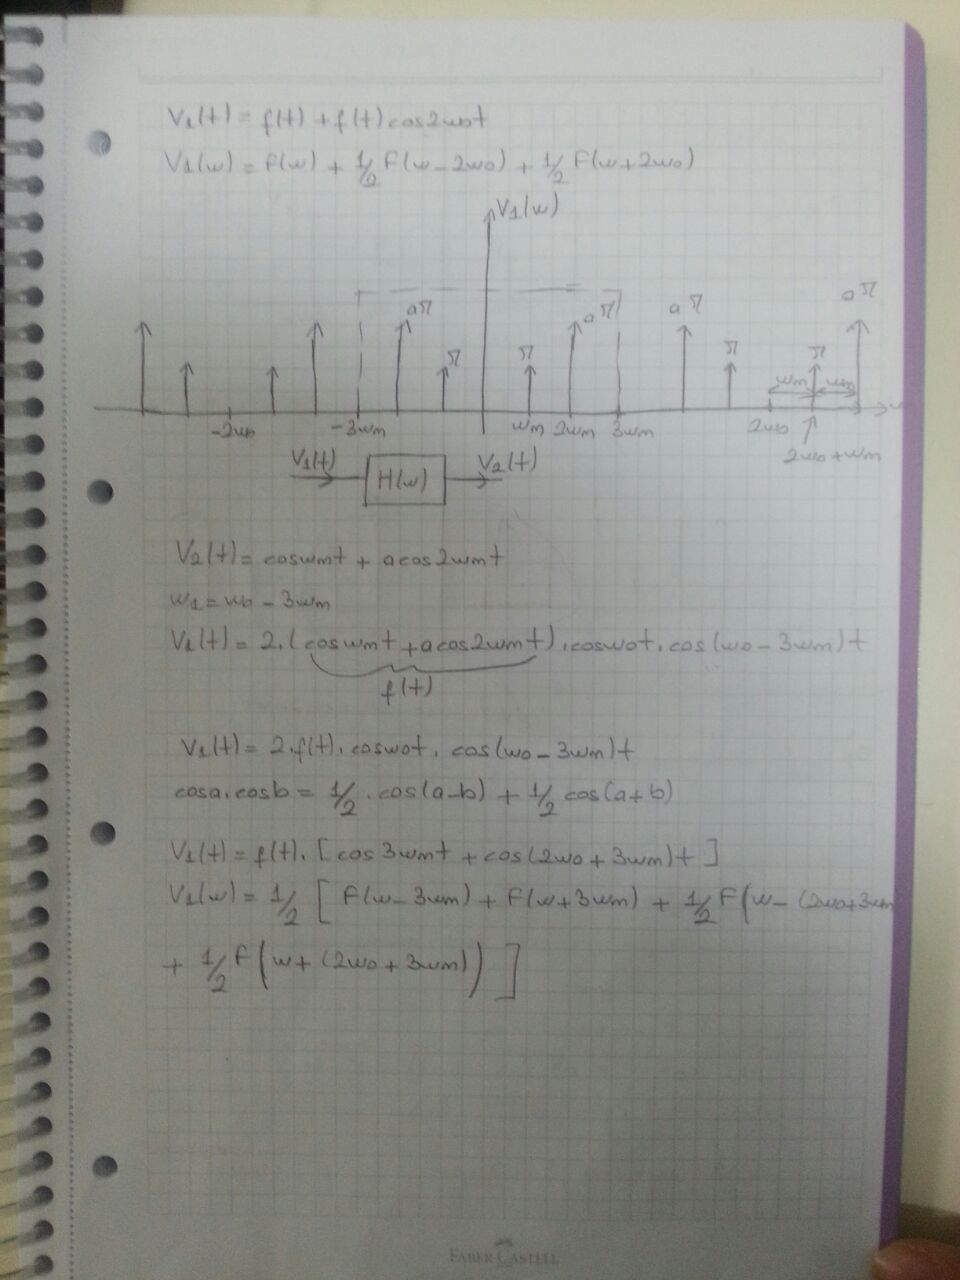 V₁(t) = f(t) + f(t) cos2w₀t
V₁(w) = F(w) + 1/2 F(w-2w₀) + 1/2 F(w+2w₀)
V₁(w)
aπ
π
π
aπ
aπ
π
π
aπ
wm
wm
-2w₀
-3wm
wm
2wm
3wm
2w₀
2w₀+wm
V₁(t)
H(w)
V₂(t)
V₂(t) = coswmt + acos2wmt
w₁ = w₀ - 3wm
V₁(t) = 2.(coswmt + acos2wmt).cosw₀t.cos(w₀-3wm)t
f(t)
V₁(t) = 2.f(t).cosw₀t.cos(w₀-3wm)t
cosa.cosb = 1/2.cos(a-b) + 1/2 cos(a+b)
V₁(t) = f(t).[cos3wmt + cos(2w₀+3wm)t]
V₁(w) = 1/2 [F(w-3wm) + F(w+3wm) + 1/2 F(w-(2w₀+3wm
+ 1/2 F(w+(2w₀+3wm))]
FABER-CASTELL